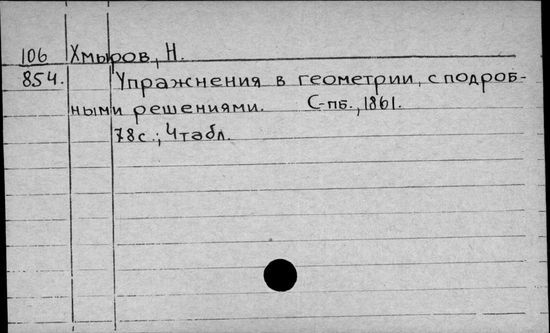 106 Хмыров, Н.
854. Упражнения в геометрии, с подроб-
ными решениями. С-пб., 1861.
78 с.; 4 табл.